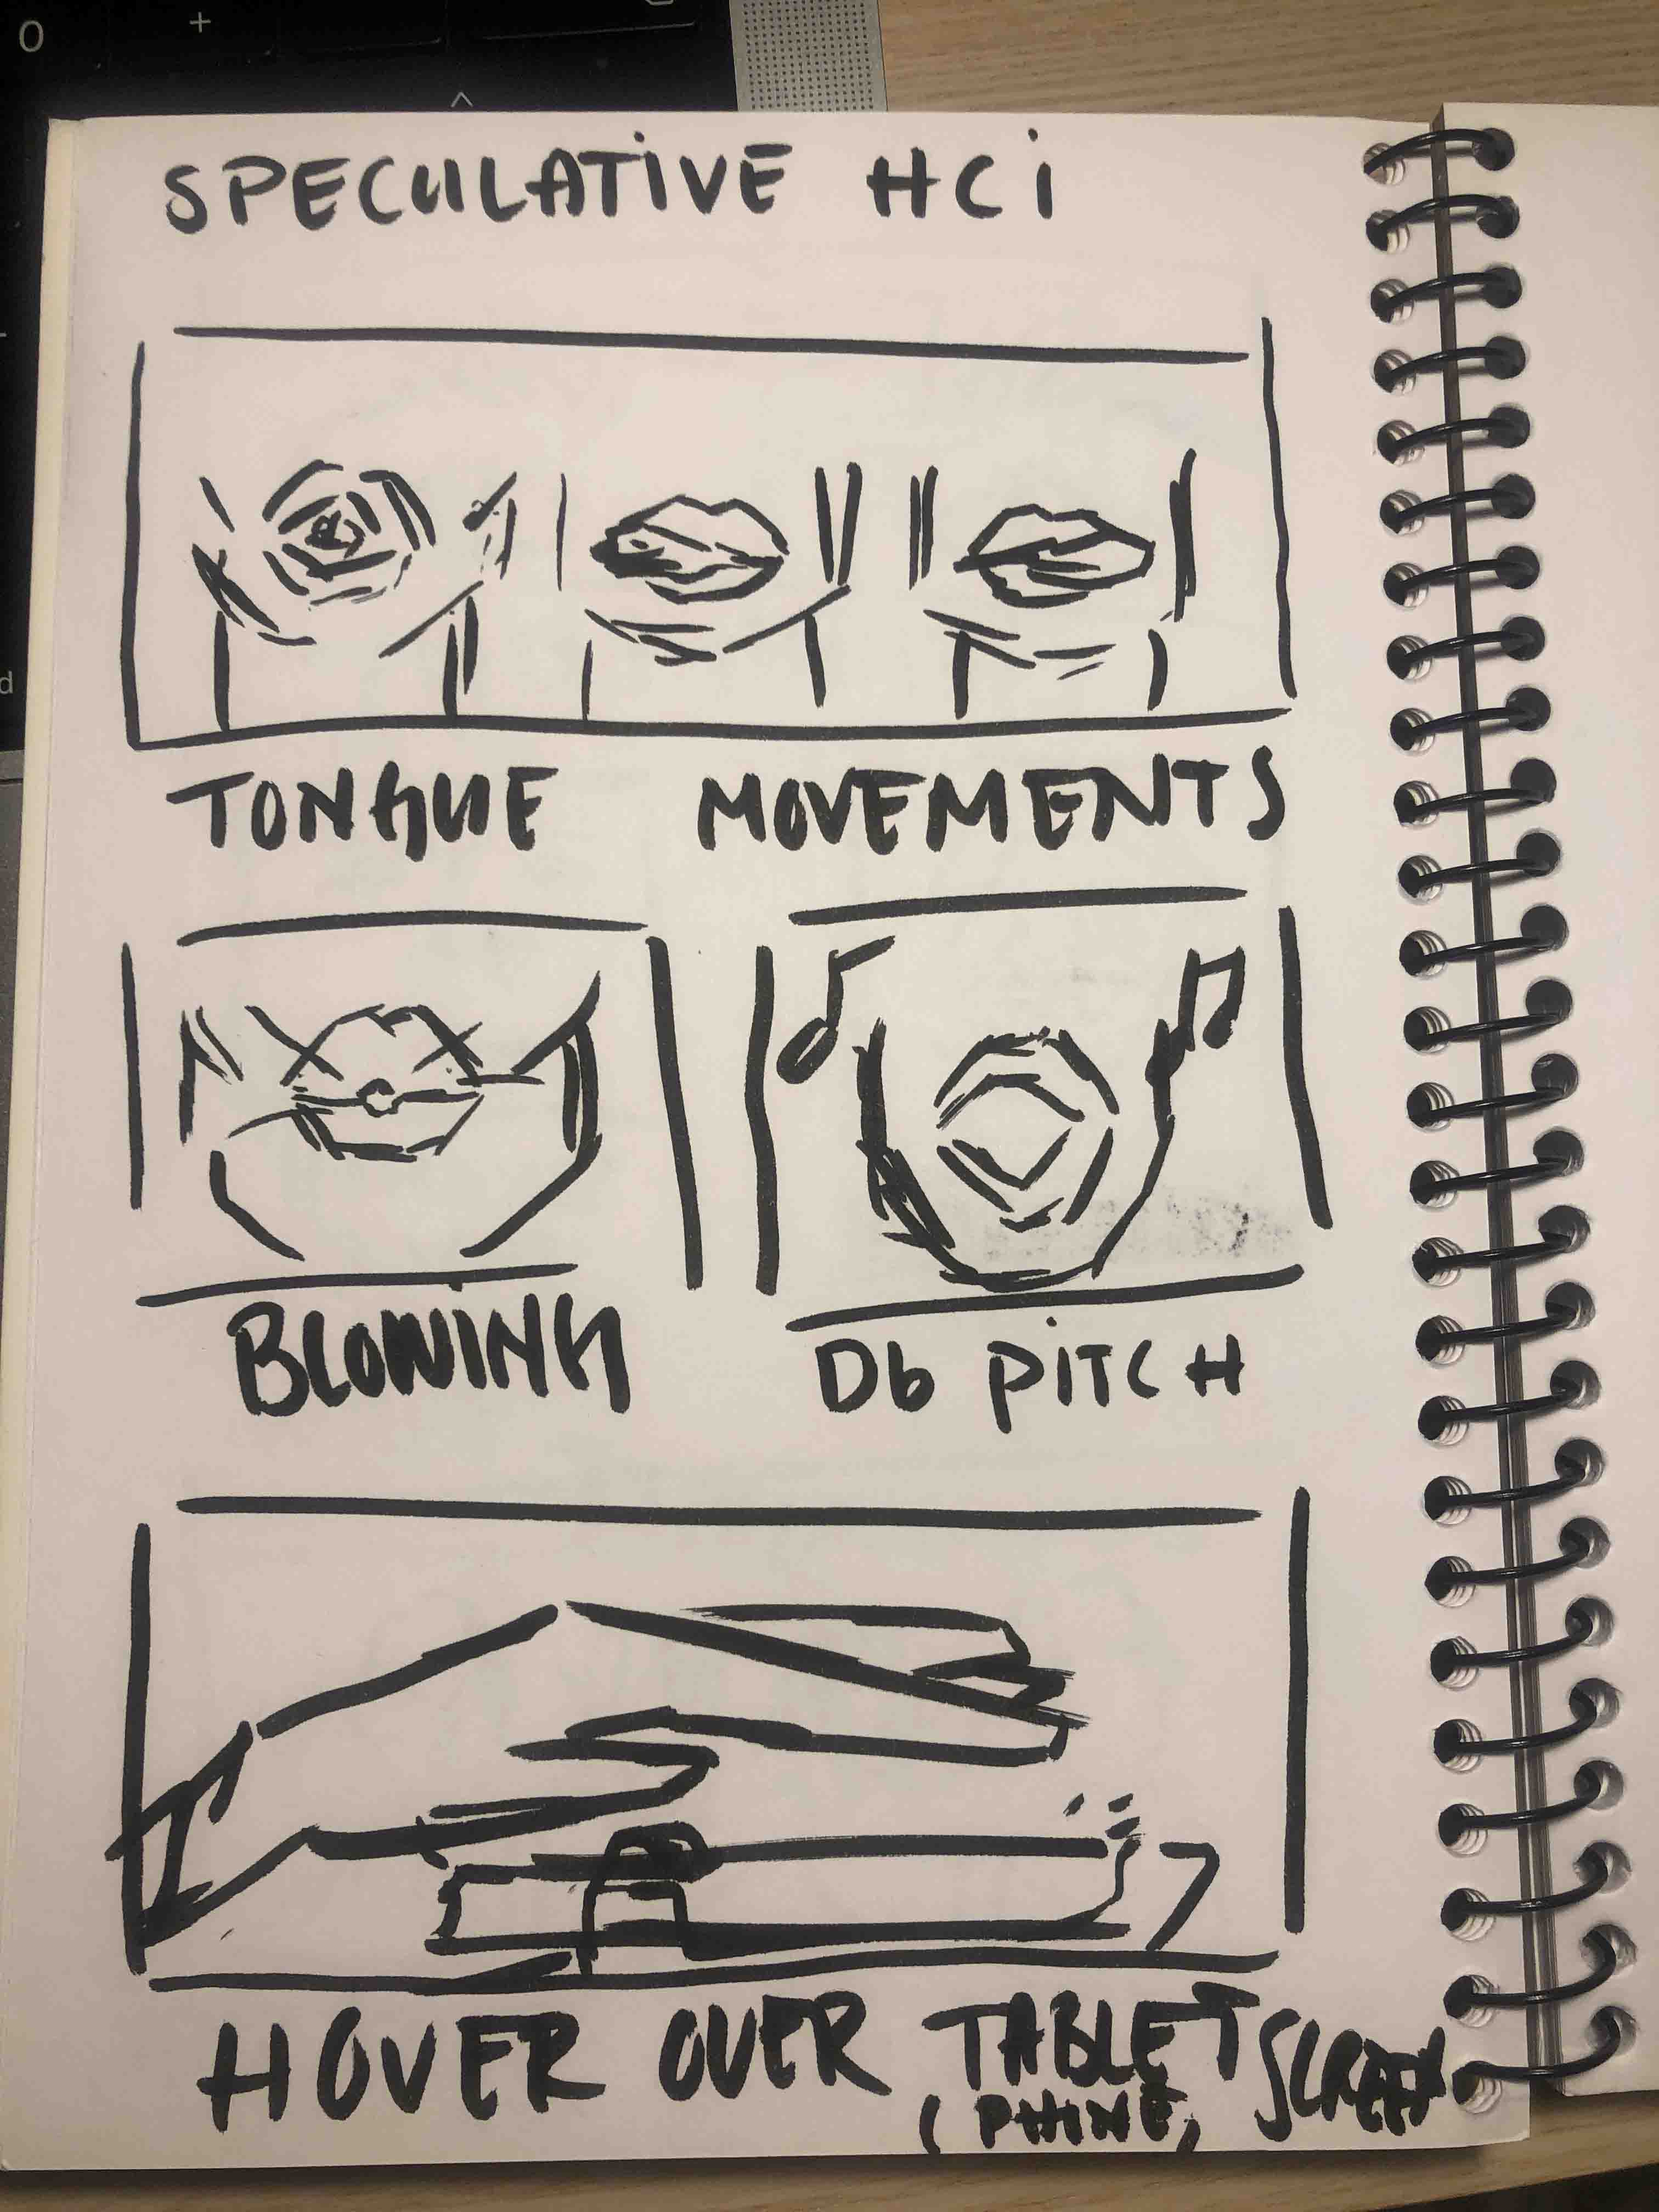 SPECULATIVE HCi
TONGUE MOVEMENTS
BLOWING
Db PiTCH
HOVER OVER TABLET SCREEN
(PHONE,
O
+
^
d